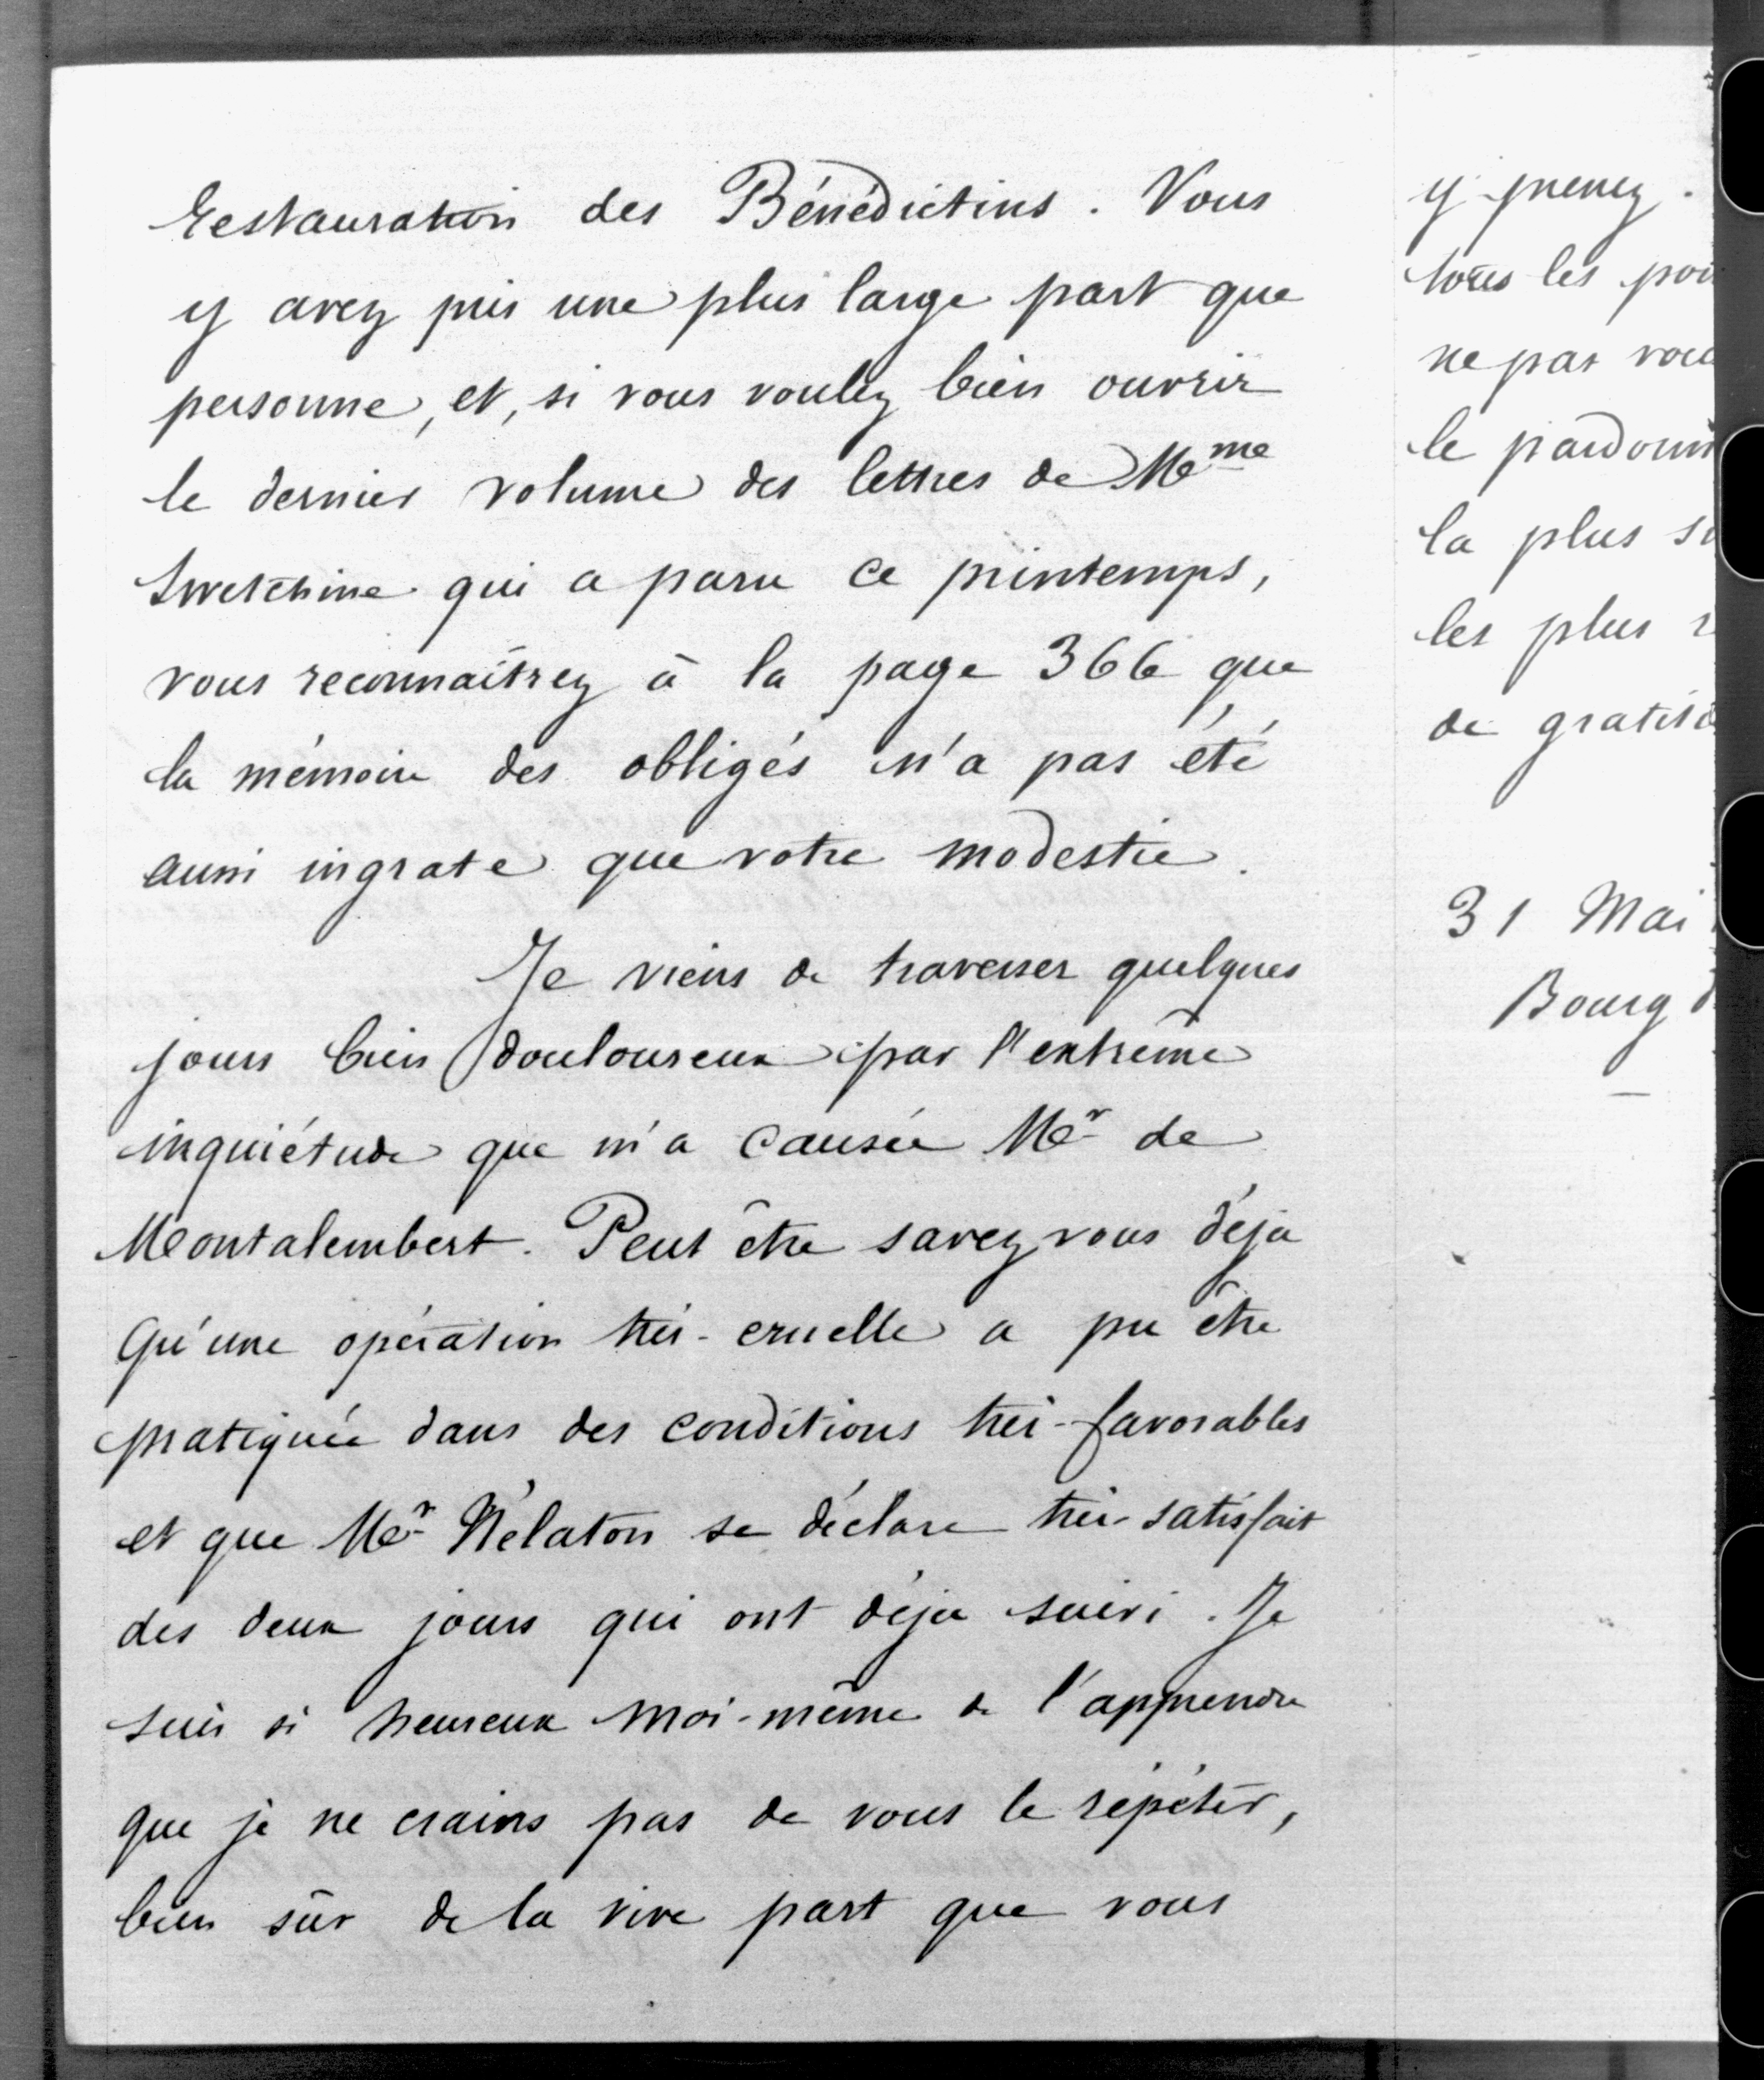 restauration des Bénédictins. Vous
y avez pris une plus large part que
personne, et, si vous voulez bien ouvrir
le dernier volume des lettres de Mme
Swetchine qui a paru ce printemps,
vous reconnaîtrez à la page 366 que
la mémoire des obligés n'a pas été
aussi ingrate que votre modestie.
Je viens de traverser quelques
jours bien douloureux par l'extrême
inquiétude que m'a causée Mr de
Montalembert. Peut être savez vous déja
qu'une opération très-cruelle a pu être
pratiquée dans des conditions très-favorables
et que Mr Nélaton se déclare très-satisfait
des deux jours qui ont déja suivi. Je
suis si heureux moi-même de l'apprendre
que je ne crains pas de vous le répéter,
bien sûr de la vive part que vous
y prenez.
tous les
ne pas
le
la plus
les plus
de
31 Mai
Bourg